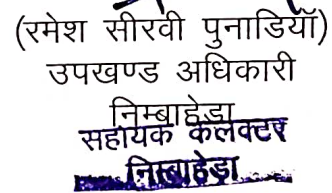 (रमेश सीरवी पुनाडियॉ)
उपखण्ड अधिकारी
निम्बाहेड़ा
सहायक कलेक्टर
निम्बाहेड़ा